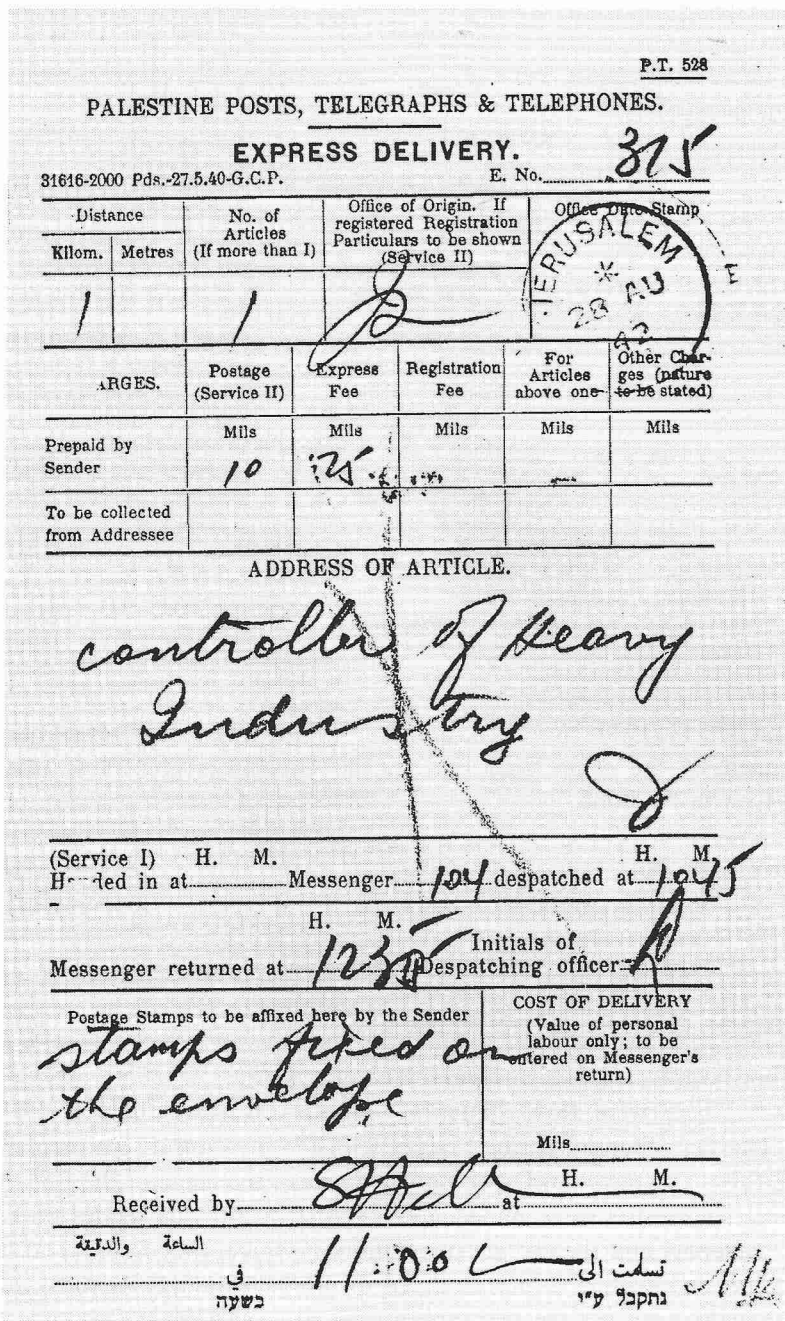 P.T. 528
PALESTINE POSTS, TELEGRAPHS & TELEPHONES.
EXPRESS DELIVERY.
31616-2000 Pds.-27.5.40-G.C.P. E. No. 375
Distance
Kilom. Metres
No. of Articles (If more than I)
Office of Origin. If registered Registration Particulars to be shown (Service II)
Office Date Stamp
1 1
JERUSALEM
28 AU
42
ARGES.
Postage (Service II)
Express Fee
Registration Fee
For Articles above one
Other Charges (nature to be stated)
Mils Mils Mils Mils Mils
Prepaid by Sender 10 25
To be collected from Addressee
ADDRESS OF ARTICLE.
controller of Heavy
Industry
(Service I) H. M. H. M.
Handed in at Messenger 104 despatched at 1045
H. M.
Messenger returned at 1235 Initials of Despatching officer
Postage Stamps to be affixed here by the Sender
stamps fixed on
the envelope
COST OF DELIVERY
(Value of personal
labour only; to be
entered on Messenger's
return)
Mils
H. M.
Received by at
الساعة والدقيقة
11.00
تسلمت الى
في
נתקבל ע"י
בשעה